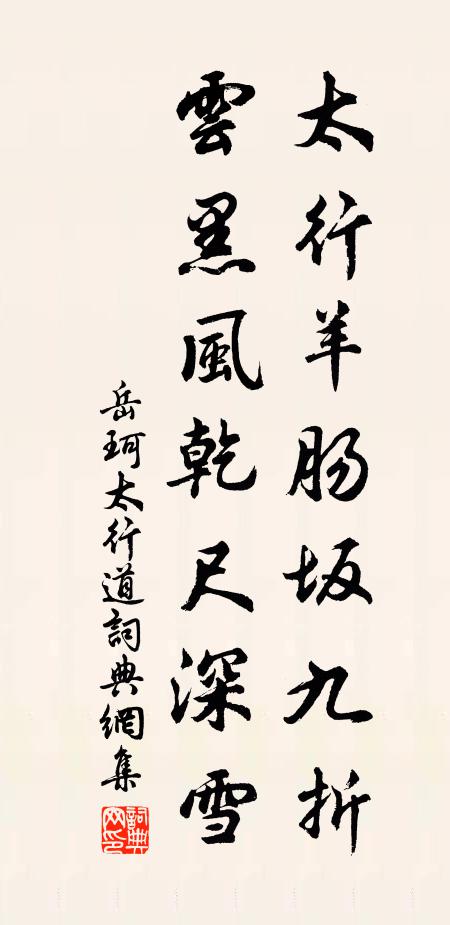 太行羊腸坂九折
雲黑風乾尺深雪
岳珂太行道詞典網集
詞典網印